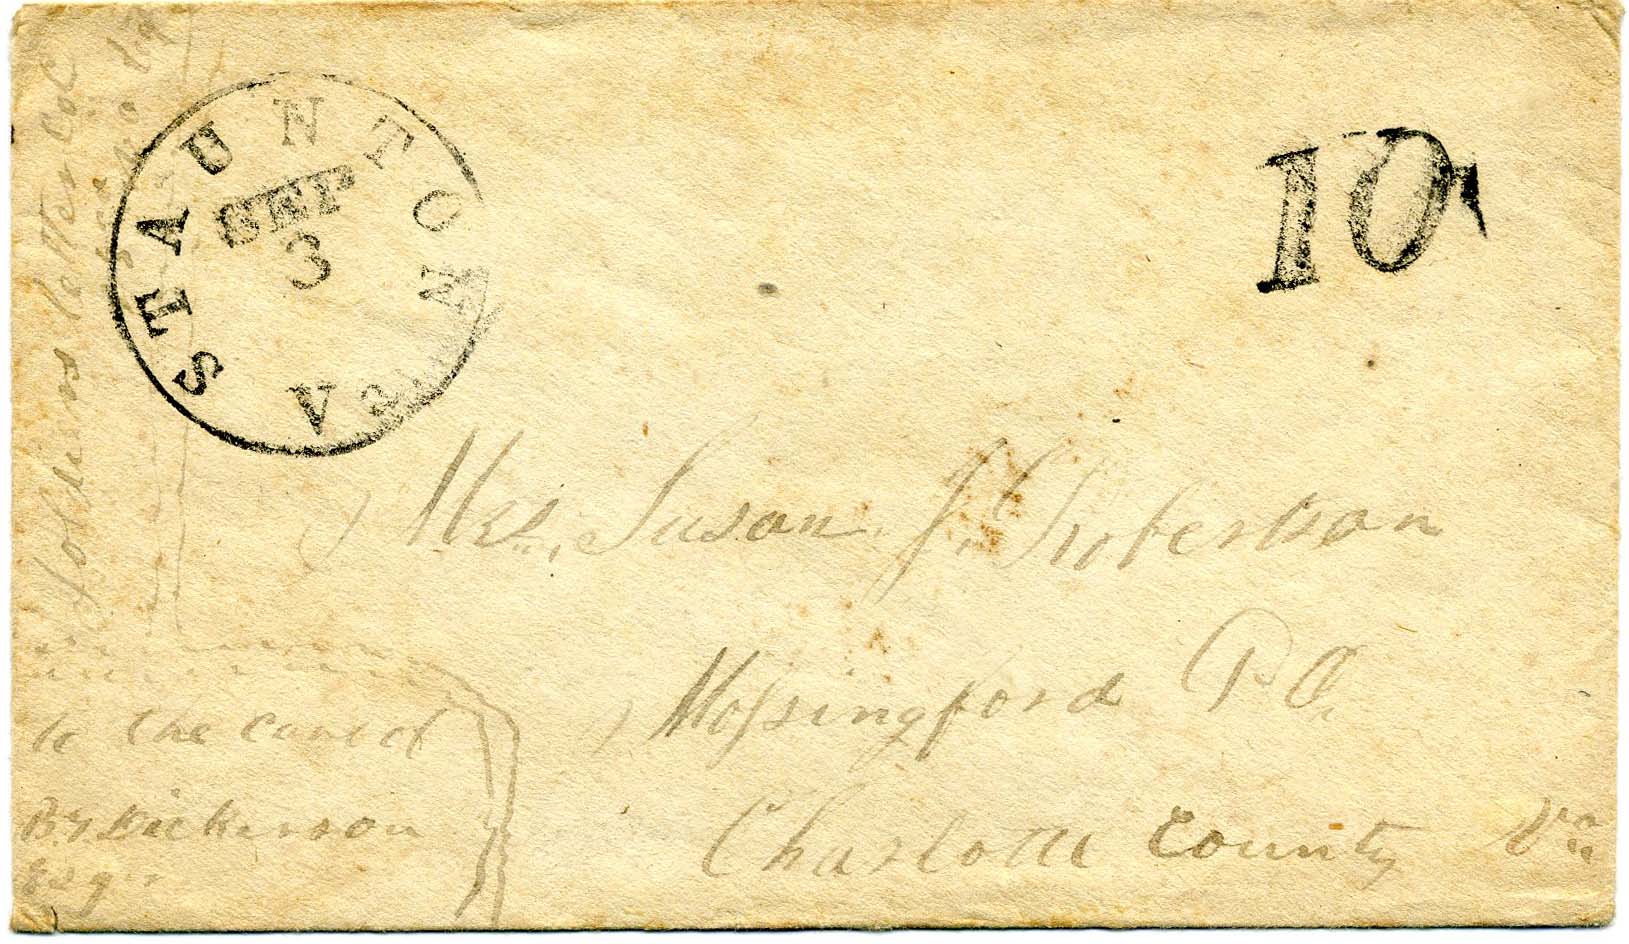 STAUNTON
SEP
3
VA
10
Soldiers letter Col
Mrs. Susan J. Roberson
Mossingford P.O.
Charlotte County Va
to the care of
Dickerson
Esq